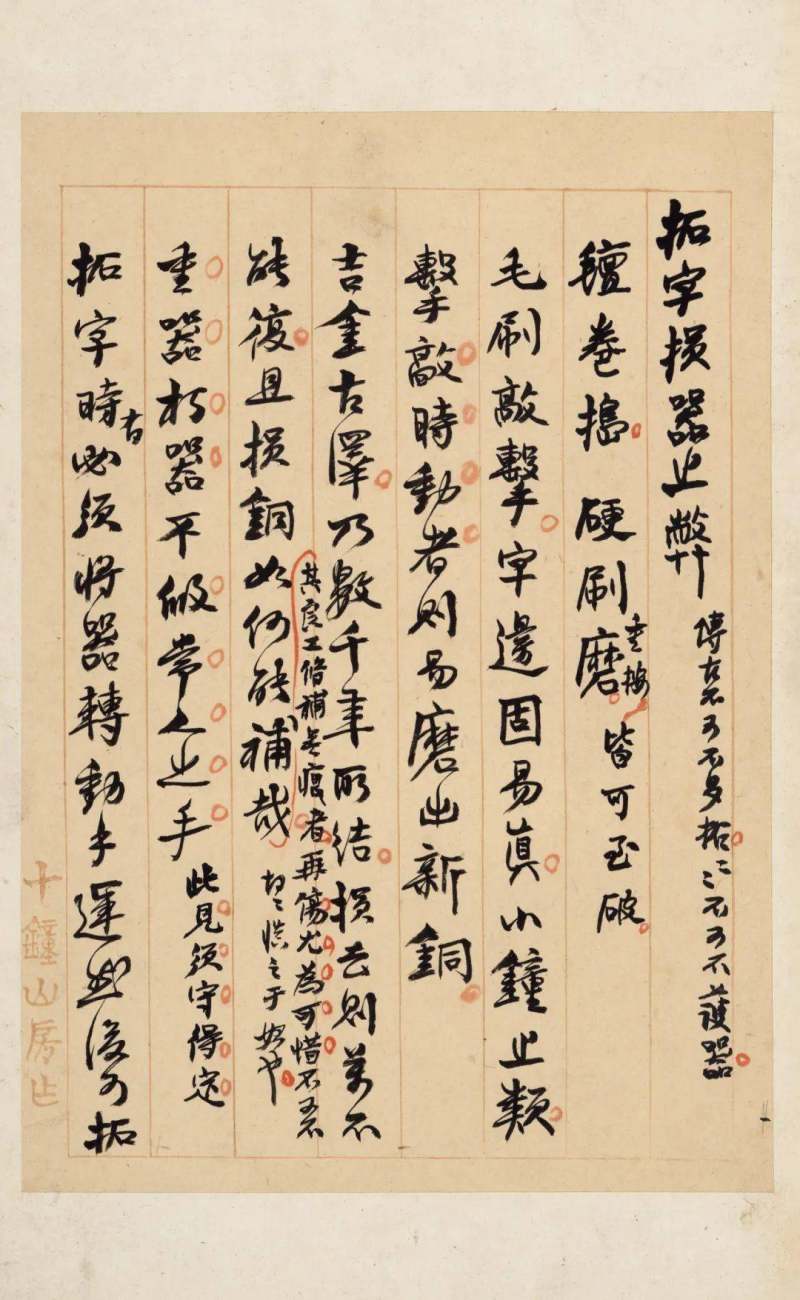 拓字損器之弊 傳古不可不多拓二二不可不護器
氈卷搗 硬刷磨重按 皆可至破
毛刷敲擊字邊固易真小鐘之類
擊敲時動者則易磨出新銅
吉金古澤乃數千年所結損去則萬不
能復且損銅如何能補哉 其良工修補無痕者再傷尤為可惜不可不
切切慎之于始也
重器朽器不假常人之手 此見須守得定
拓字時有必須將器轉動手運然後可拓
十鐘山房